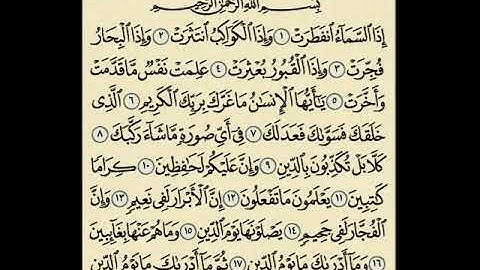 بِسْمِ اللَّهِ الرَّحْمَٰنِ الرَّحِيمِ
إِذَا السَّمَاءُ انفَطَرَتْ ١ وَإِذَا الْكَوَاكِبُ انتَثَرَتْ ٢ وَإِذَا الْبِحَارُ
فُجِّرَتْ ٣ وَإِذَا الْقُبُورُ بُعْثِرَتْ ٤ عَلِمَتْ نَفْسٌ مَّا قَدَّمَتْ
وَأَخَّرَتْ ٥ يَٰأَيُّهَا الْإِنسَٰنُ مَا غَرَّكَ بِرَبِّكَ الْكَرِيمِ ٦ الَّذِى
خَلَقَكَ فَسَوَّىٰكَ فَعَدَلَكَ ٧ فِىٓ أَىِّ صُورَةٍ مَّا شَآءَ رَكَّبَكَ ٨
كَلَّا بَلْ تُكَذِّبُونَ بِالدِّينِ ٩ وَإِنَّ عَلَيْكُمْ لَحَٰفِظِينَ ١٠ كِرَامًا
كَٰتِبِينَ ١١ يَعْلَمُونَ مَا تَفْعَلُونَ ١٢ إِنَّ الْأَبْرَارَ لَفِى نَعِيمٍ ١٣ وَإِنَّ
الْفُجَّارَ لَفِى جَحِيمٍ ١٤ يَصْلَوْنَهَا يَوْمَ الدِّينِ ١٥ وَمَا هُمْ عَنْهَا بِغَآئِبِينَ
١٦ وَمَآ أَدْرَىٰكَ مَا يَوْمُ الدِّينِ ١٧ ثُمَّ مَآ أَدْرَىٰكَ مَا يَوْمُ الدِّينِ